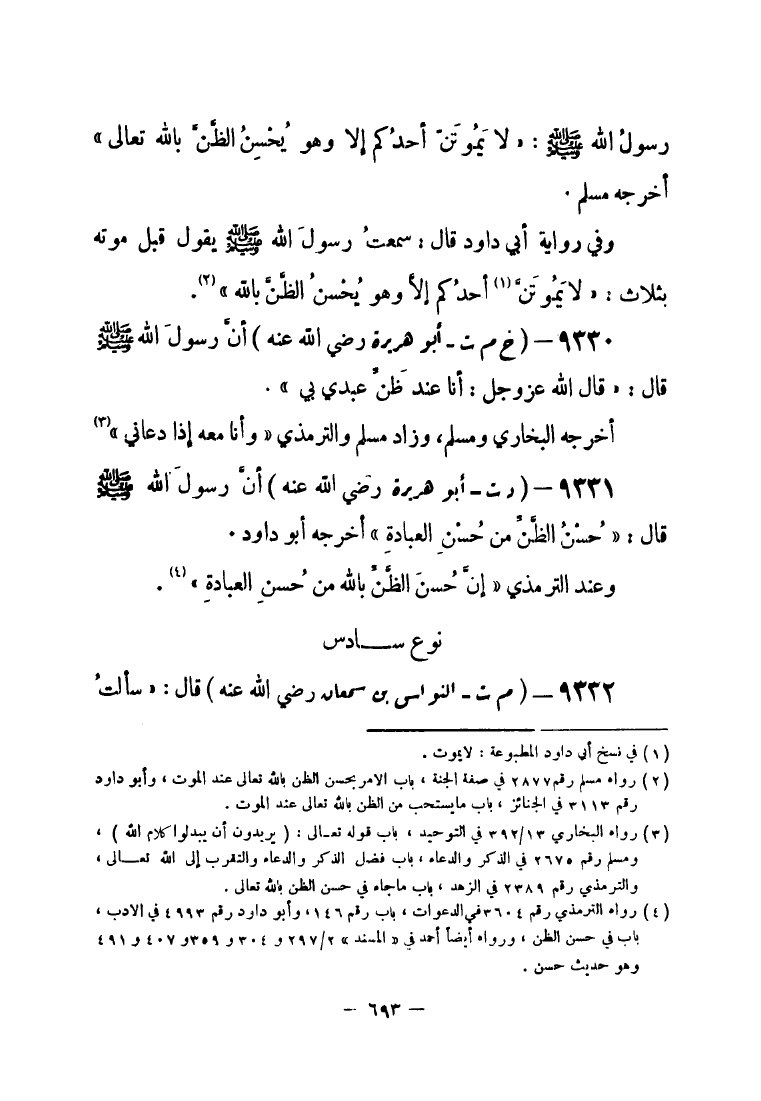 رسولُ الله ﷺ : « لا يَمُوتَنَّ أحدُكم إلا وهو يُحْسِنُ الظَّنَّ بالله تعالى »
أخرجه مسلم .
وفي رواية أبي داود قال : سمعتُ رسولَ الله ﷺ يقول قبل موته
بثلاث : « لايَمُوتَنَّ (١) أحدُكم إلاَّ وهو يُحْسِنُ الظَّنَّ بالله » (٢) .
٩٣٣٠ – ( خ م ت - أبو هريرة رضي الله عنه ) أنَّ رسولَ الله ﷺ
قال : « قال الله عزوجل : أنا عند ظَنِّ عبدي بي » .
أخرجه البخاري ومسلم، وزاد مسلم والترمذي « وأنا معه إذا دعاني » (٣)
٩٣٣١ – ( د ت - أبو هريرة رضي الله عنه ) أنَّ رسولَ الله ﷺ
قال : « حُسْنُ الظَّنِّ من حُسْنِ العبادةِ » أخرجه أبو داود .
وعند الترمذي « إنَّ حُسنَ الظَّنِّ بالله من حُسنِ العبادةِ » (٤) .
نوع ســـادس
٩٣٣٢ – ( م ت - النواس بن سمعان رضي الله عنه ) قال : « سألتُ
(١) في نسخ أبي داود المطبوعة : لايموت .
(٢) رواه مسلم رقم ٢٨٧٧ في صفة الجنة ، باب الامر بحسن الظن بالله تعالى عند الموت ، وأبو داود
رقم ٣١١٣ في الجنائز ، باب مايستحب من الظن بالله تعالى عند الموت .
(٣) رواه البخاري ٣٩٢/١٣ في التوحيد ، باب قوله تعـالى : ( يريدون أن يبدلوا كلام الله ) ،
ومسلم رقم ٢٦٧٥ في الذكر والدعاء ، باب فضل الذكر والدعاء والتقرب إلى الله تعـــالى ،
والترمذي رقم ٢٣٨٩ في الزهد ، باب ماجاء في حسن الظن بالله تعالى .
(٤) رواه الترمذي رقم ٣٦٠٤ في الدعوات ، باب رقم ١٤٦ ، وأبو داود رقم ٤٩٩٣ في الادب ،
باب في حسن الظن ، ورواه أيضاً أحمد في « المسند » ٢٩٧/٢ و ٣٠٤ و ٣٥٩ و ٤٠٧ و ٤٩١
وهو حديث حسن .
– ٦٩٣ –